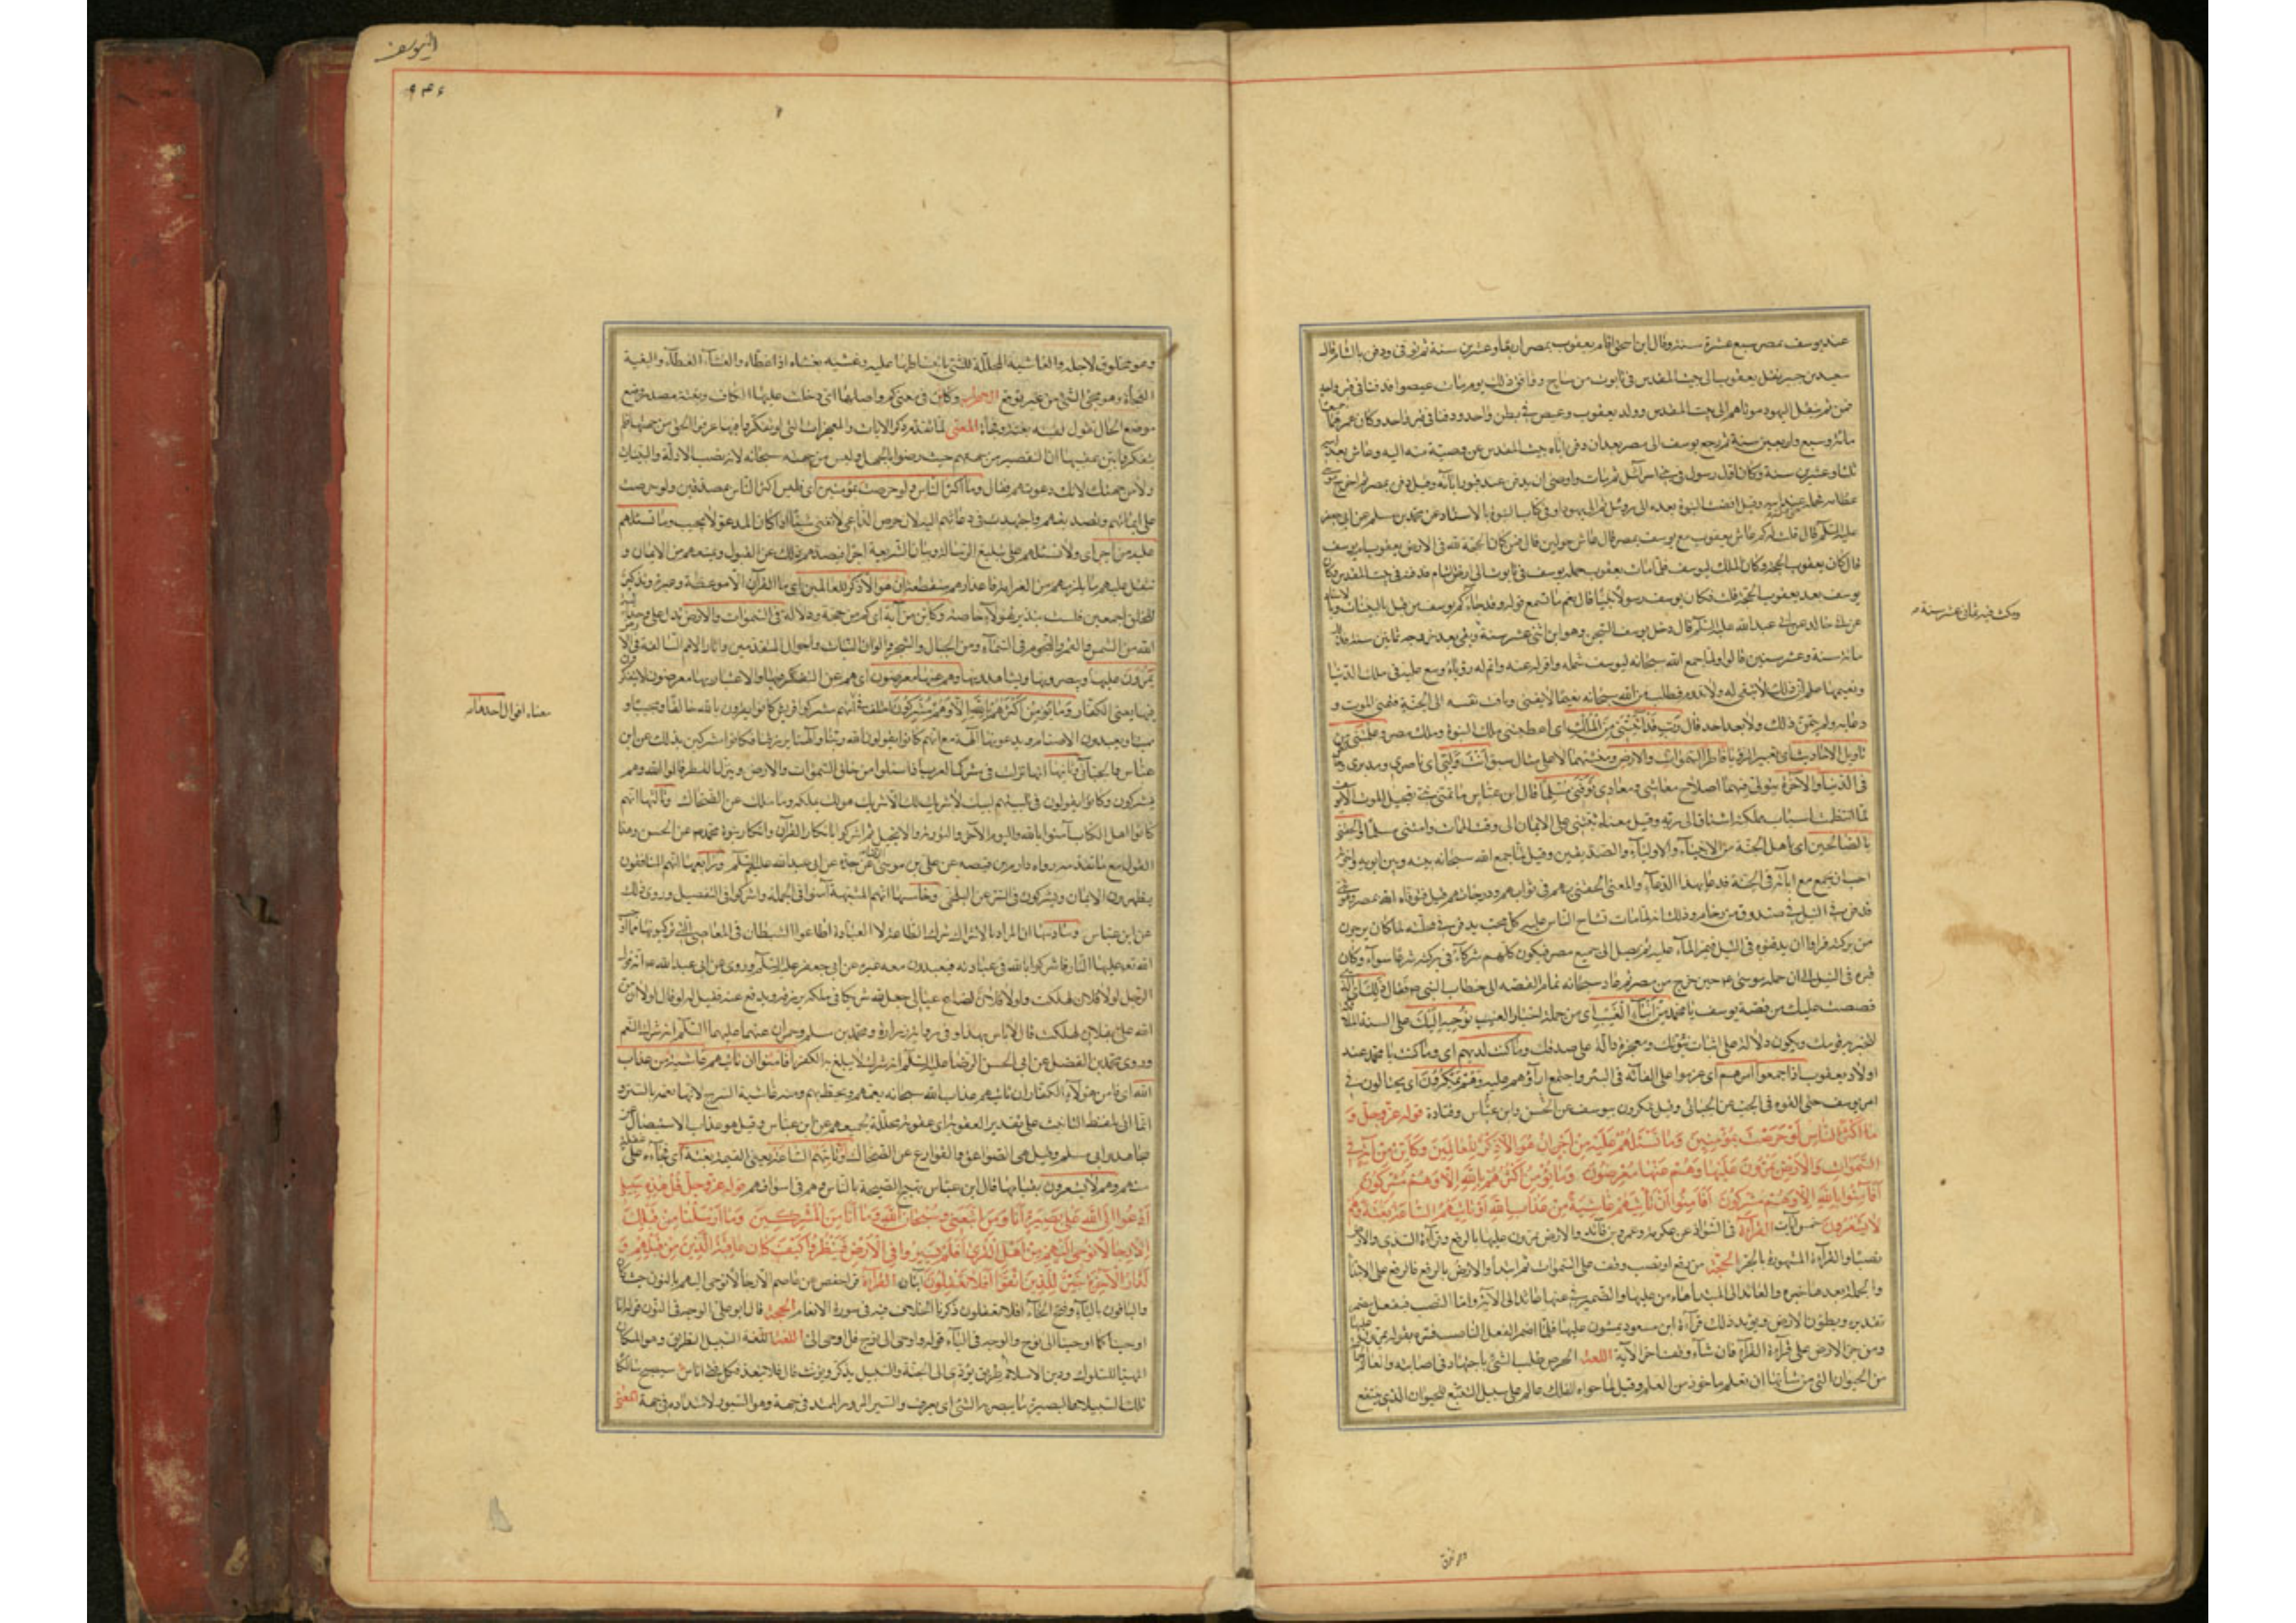 عند يوسف بمصر سبع عشرة سنة وقال ابن اسحق اقام يعقوب بمصر اربعا وعشرين سنة ثم توفى ودفن بالشام قال
سعيد بن جبير نقل يعقوب الى بيت المقدس فى تابوت من ساج ووافق ذلك يوم مات عيصوا فدفنا فى قبر واحد
فمن ثم ينقل اليهود موتاهم الى بيت المقدس وولد يعقوب وعيص فى بطن واحد ودفنا فى قبر واحد وكان عمرهما جميعا
مائة وسبع واربعين سنة ثم رجع يوسف الى مصر بعد ان دفن اباه ببيت المقدس عن وصية منه اليه وعاش بعد ابيه
ثلثا وعشرين سنة وكان اول رسول فى بنى اسرائيل ثم مات واوصى ان يدفن عند قبور ابائه وقيل دفن بمصر ثم اخرج موسى
عظامه فحمله وقيل افضت النبوة بعده الى روبيل ثم الى يهودا وفى كتاب النبوة بالاسناد عن محمد بن مسلم عن ابى جعفر
عليه السلام قال قلت له كم عاش يعقوب مع يوسف بمصر قال عاش حولين قال فمن كان الحجة لله فى الارض يعقوب ام يوسف
قال كان يعقوب الحجة وكان الملك ليوسف فلما مات يعقوب حمله يوسف فى تابوت الى ارض الشام فدفنه فى بيت المقدس وكان
يوسف بعد يعقوب الحجة قلت فكان يوسف رسولا نبيا قال نعم اما تسمع قوله ولقد جاءكم يوسف من قبل بالبينات
عن ابى خالد عن ابى عبد الله عليه السلام قال دخل يوسف السجن وهو ابن اثنى عشر سنة وبقى بعد خروجه ثمانين سنة فذلك
مائة سنة وعشر سنين قالوا ولما جمع الله سبحانه ليوسف شمله واقر له عينه واتم له رؤياه ووسع عليه فى ملك الدنيا
ونعيمها علم ان ذلك لا يبقى له ولا يدوم فطلب من الله سبحانه نعيما لا يفنى وتاقت نفسه الى الجنة فتمنى الموت و
دعا به ولم يتمن ذلك ولا بعده احد قال رب قد آتيتنى من الملك اى اعطيتنى ملك النبوة وملك مصر وعلمتنى من
تاويل الاحاديث اى تعبير الرؤيا فاطر السموات والارض ومنشئهما لا على مثال سبق انت وليى اى ناصرى ومدبرى
فى الدنيا والآخرة يتولى فيهما اصلاح معاشى ومعادى توفنى مسلما قال ابن عباس ما تمنى نبى تعجيل الموت الا يوسف
لما انتظمت اسباب مملكته اشتاق الى ربه وقيل معناه ثبتنى على الايمان الى وقت الممات وامتنى مسلما والحقنى
بالصالحين اى باهل الجنة من الانبياء والاولياء والصديقين وقيل لما جمع الله سبحانه بينه وبين ابويه واخوته
احب ان يجتمع مع ابائه فى الجنة فدعا بهذا الدعاء والمعنى الحقنى بهم فى ثوابهم ودرجاتهم قيل فتوفاه الله بمصر وهو نبى
فدفن فى النيل فى صندوق من رخام وذلك انه لما مات تشاح الناس عليه كل يحب يدفن فى محلته لما كان يرجون
من بركته فراوا ان يدفنوه فى النيل فيمر الماء عليه ثم يصل الى جميع مصر فيكون كلهم شركاء فى بركته شرعا سواء وكان
قبره فى النيل الى ان حمله موسى ع حين خرج من مصر ثم عاد سبحانه تمام القصة الى خطاب النبى ص فقال ذلك اى الذى
قصصت عليك من قصة يوسف يا محمد من انباء الغيب اى من جملة اخبار الغيب نوحيه اليك على السنة الملائكة
لتخبر به قومك ويكون دلالة على اثبات نبوتك ومعجزة دالة على صدقك وما كنت لديهم اى وما كنت يا محمد عند
اولاد يعقوب اذ اجمعوا امرهم اى عزموا على القائه فى البئر واجتمع آراؤهم عليه وهم يمكرون اى يحتالون فى
امر يوسف حتى القوه فى الجب عن الجبائى وقيل يمكرون بيوسف عن الحسن وابن عباس وقتادة قوله عز وجل و
ما اكثر الناس لو حرصت بمؤمنين وما تسئلهم عليه من اجر ان هو الا ذكر للعالمين وكاين من آية فى
السموات والارض يمرون عليها وهم عنها معرضون وما يؤمن اكثرهم بالله الا وهم مشركون
افامنوا بالله الا وهم مشركون افامنوا ان تأتيهم غاشية من عذاب الله او تأتيهم الساعة بغتة وهم
لا يشعرون خمس آيات القراءة فى الشواذ عن عكرمة وعمرو بن فائد والارض يمرون عليها بالرفع وقراءة السدى والارض
نصبا والقراءة المشهورة بالجر الحجة من رفع او نصب وقف على السموات ثم ابتدأ والارض بالرفع فالرفع على الابتداء
والجملة بعدها خبره والعائد الى المبتدأ هاء من عليها والضمير فى عنها عائد الى الآية واما النصب فبفعل مضمر
تقديره ويطؤن الارض ويؤيد ذلك قراءة ابن مسعود يمشون عليها فلما اضمر الفعل الناصب فسره بقوله يمرون عليها
ومن جر الارض على قراءة القراء فان شاء وقف آخر الآية اللغة الحرص طلب الشئ باجتهاد فى اصابته والعالم جماعة
من الحيوان التى من شأنها ان تعلم ماخوذ من العلم وقيل لما حواه الفلك عالم على سبيل التبع للحيوان الذى ينتفع
ومكث فيه ثمان عشر سنة
اليوسف
وهو مخلوق لاجله والغاشية المجللة للشئ بانبساطها عليه وغشيه يغشاه اذا غطاه والغشاء الغطاء والبغتة
الفجأة وهو مجئ الشئ من غير توقع الاعراب وكاين فى معنى كم واصلها اى دخلت عليها الكاف وبغتة مصدر وضع
موضع الحال تقول لقيته بغتة وفجأة المعنى لما تقدم ذكر الآيات والمعجزات التى لو تفكروا فيها عرفوا الحق من جهتها فلم
يتفكروا بين عقيبها ان التقصير من جهتهم حيث رضوا بالجهل وليس من جهته سبحانه لانه نصب الادلة والبينات
ولا من جهتك لانك دعوتهم فقال وما اكثر الناس ولو حرصت بمؤمنين اى ليس اكثر الناس بمصدقين ولو حرصت
على ايمانهم وتصديقهم واجتهدت فى دعائهم اليه لان حرص الداعى لا يغنى شيئا اذا كان المدعو لا يجيب وما تسئلهم
عليه من اجر اى ولا تسئلهم على تبليغ الرسالة وبيان الشريعة اجرا فيصدهم ذلك عن القبول ويمنعهم من الايمان و
يثقل عليهم ما يلزمهم من الغرامة فاعذارهم منقطعة ان هو الا ذكر للعالمين اى ما القرآن الا موعظة وعبرة وتذكير
للخلق اجمعين فلست بنذير لهؤلاء خاصة وكاين من آية اى كم من حجة ودلالة فى السموات والارض تدل على وحدانية
الله من الشمس والقمر والنجوم فى السماء ومن الجبال والشجر والوان النبات واحوال المتقدمين وآثار الامم السالفة فى الارض
يمرون عليها ويبصرونها ويشاهدونها وهم عنها معرضون اى هم عن التفكر فيها والاعتبار بها معرضون لا يتفكرون
فيها يعنى الكفار وما يؤمن اكثرهم بالله الا وهم مشركون اختلف فى انهم مشركوا قريش كانوا يقرون بالله خالقا ومحييا و
مميتا ويعبدون الاصنام ويدعونها آلهة مع انهم كانوا يقولون الله ربنا وآلهنا يرزقنا فكانوا مشركين بذلك عن ابن
عباس والجبائى وثانيها انها نزلت فى مشركى العرب اذا سئلوا من خلق السموات والارض وينزل القطر قالوا الله وهم
يشركون وكانوا يقولون فى تلبيتهم لبيك لا شريك لك الا شريك هو لك تملكه وما ملك عن الضحاك وثالثها انهم
كانوا اهل الكتاب آمنوا بالله واليوم الآخر والتورية والانجيل ثم اشركوا بانكار القرآن وانكار نبوة محمد ص عن الحسن وهذا
القول مع ما تقدمه رواه دارم بن قبيصه عن على بن موسى الرضا عن جده عن ابى عبد الله عليهم السلام ورابعها انهم المنافقون
يظهرون الايمان ويشركون فى السر عن البلخى وخامسها انهم المشبهة آمنوا فى الجملة واشركوا فى التفصيل وروى ذلك
عن ابن عباس وسادسها ان المراد بالاشراك شرك الطاعة لا العبادة اطاعوا الشيطان فى المعاصى التى يرتكبونها مما اوجب
الله تع عليها النار فاشركوا بالله فى طاعته ولم يعبدون معه غيره عن ابى جعفر عليه السلام وروى عن ابى عبد الله ع انه قول
الرجل لولا فلان لهلكت ولولا فلان لضاع عيالى جعل لله شريكا فى ملكه يرزقه ويدفع عنه فقيل له لو قال لولا ان من
الله على بفلان لهلكت قال لا باس بهذا وفى رواية زرارة ومحمد بن مسلم وحمران عنهما عليهما السلم انه شرك النعم
وروى محمد بن الفضل عن ابى الحسن الرضا عليه السلم انه شرك لا يبلغ به الكفر افامنوا ان تاتيهم غاشية من عذاب
الله اى افامن هؤلاء الكفار ان تاتيهم عذاب الله سبحانه يعمهم ويحيط بهم ومنه غاشية السرج لانها تعمه بالستر و
انما اتى بلفظ التانيث على تقدير العقوبة اى عقوبة مجللة لجميعهم عن ابن عباس وقيل هو عذاب الاستيصال عن
مجاهد وابى مسلم وقيل هى الصواعق والقوارع عن الضحاك او تاتيهم الساعة يعنى القيمة بغتة اى فجأة على غفلة
منهم وهم لا يشعرون بقيامها قال ابن عباس تهيج الصيحة بالناس وهم فى اسواقهم قوله عز وجل قل هذه سبيلى
ادعوا الى الله على بصيرة انا ومن اتبعنى وسبحان الله وما انا من المشركين وما ارسلنا من قبلك
الا رجالا نوحى اليهم من اهل القرى افلم يسيروا فى الارض فينظروا كيف كان عاقبة الذين من قبلهم و
لدار الآخرة خير للذين اتقوا افلا تعقلون آيتان القراءة قرأ حفص عن عاصم الا رجالا نوحى اليهم بالنون حيث كان
والباقون بالياء وفتح الحاء افلا تعقلون ذكرنا اختلافهم فيه فى سورة الانعام الحجة قال ابو على الوجه فى النون قوله انا
اوحينا كما اوحينا الى نوح والوجه فى الياء قوله واوحى الى نوح قل اوحى الى اللغة السبيل الطريق وهو المكان
المهيأ للسلوك ودين الاسلام طريق يؤدى الى الجنة والسبيل يذكر ويؤنث قال فلا تبعد فكل فتى اناس سيصبح سالكا
تلك السبيلا والبصيرة ما يبصر به الشئ اى يعرف والسير المرور الممتد فى جهة ومنه السيور لامتداده فى جهة المعنى
معناه اقوال احدها